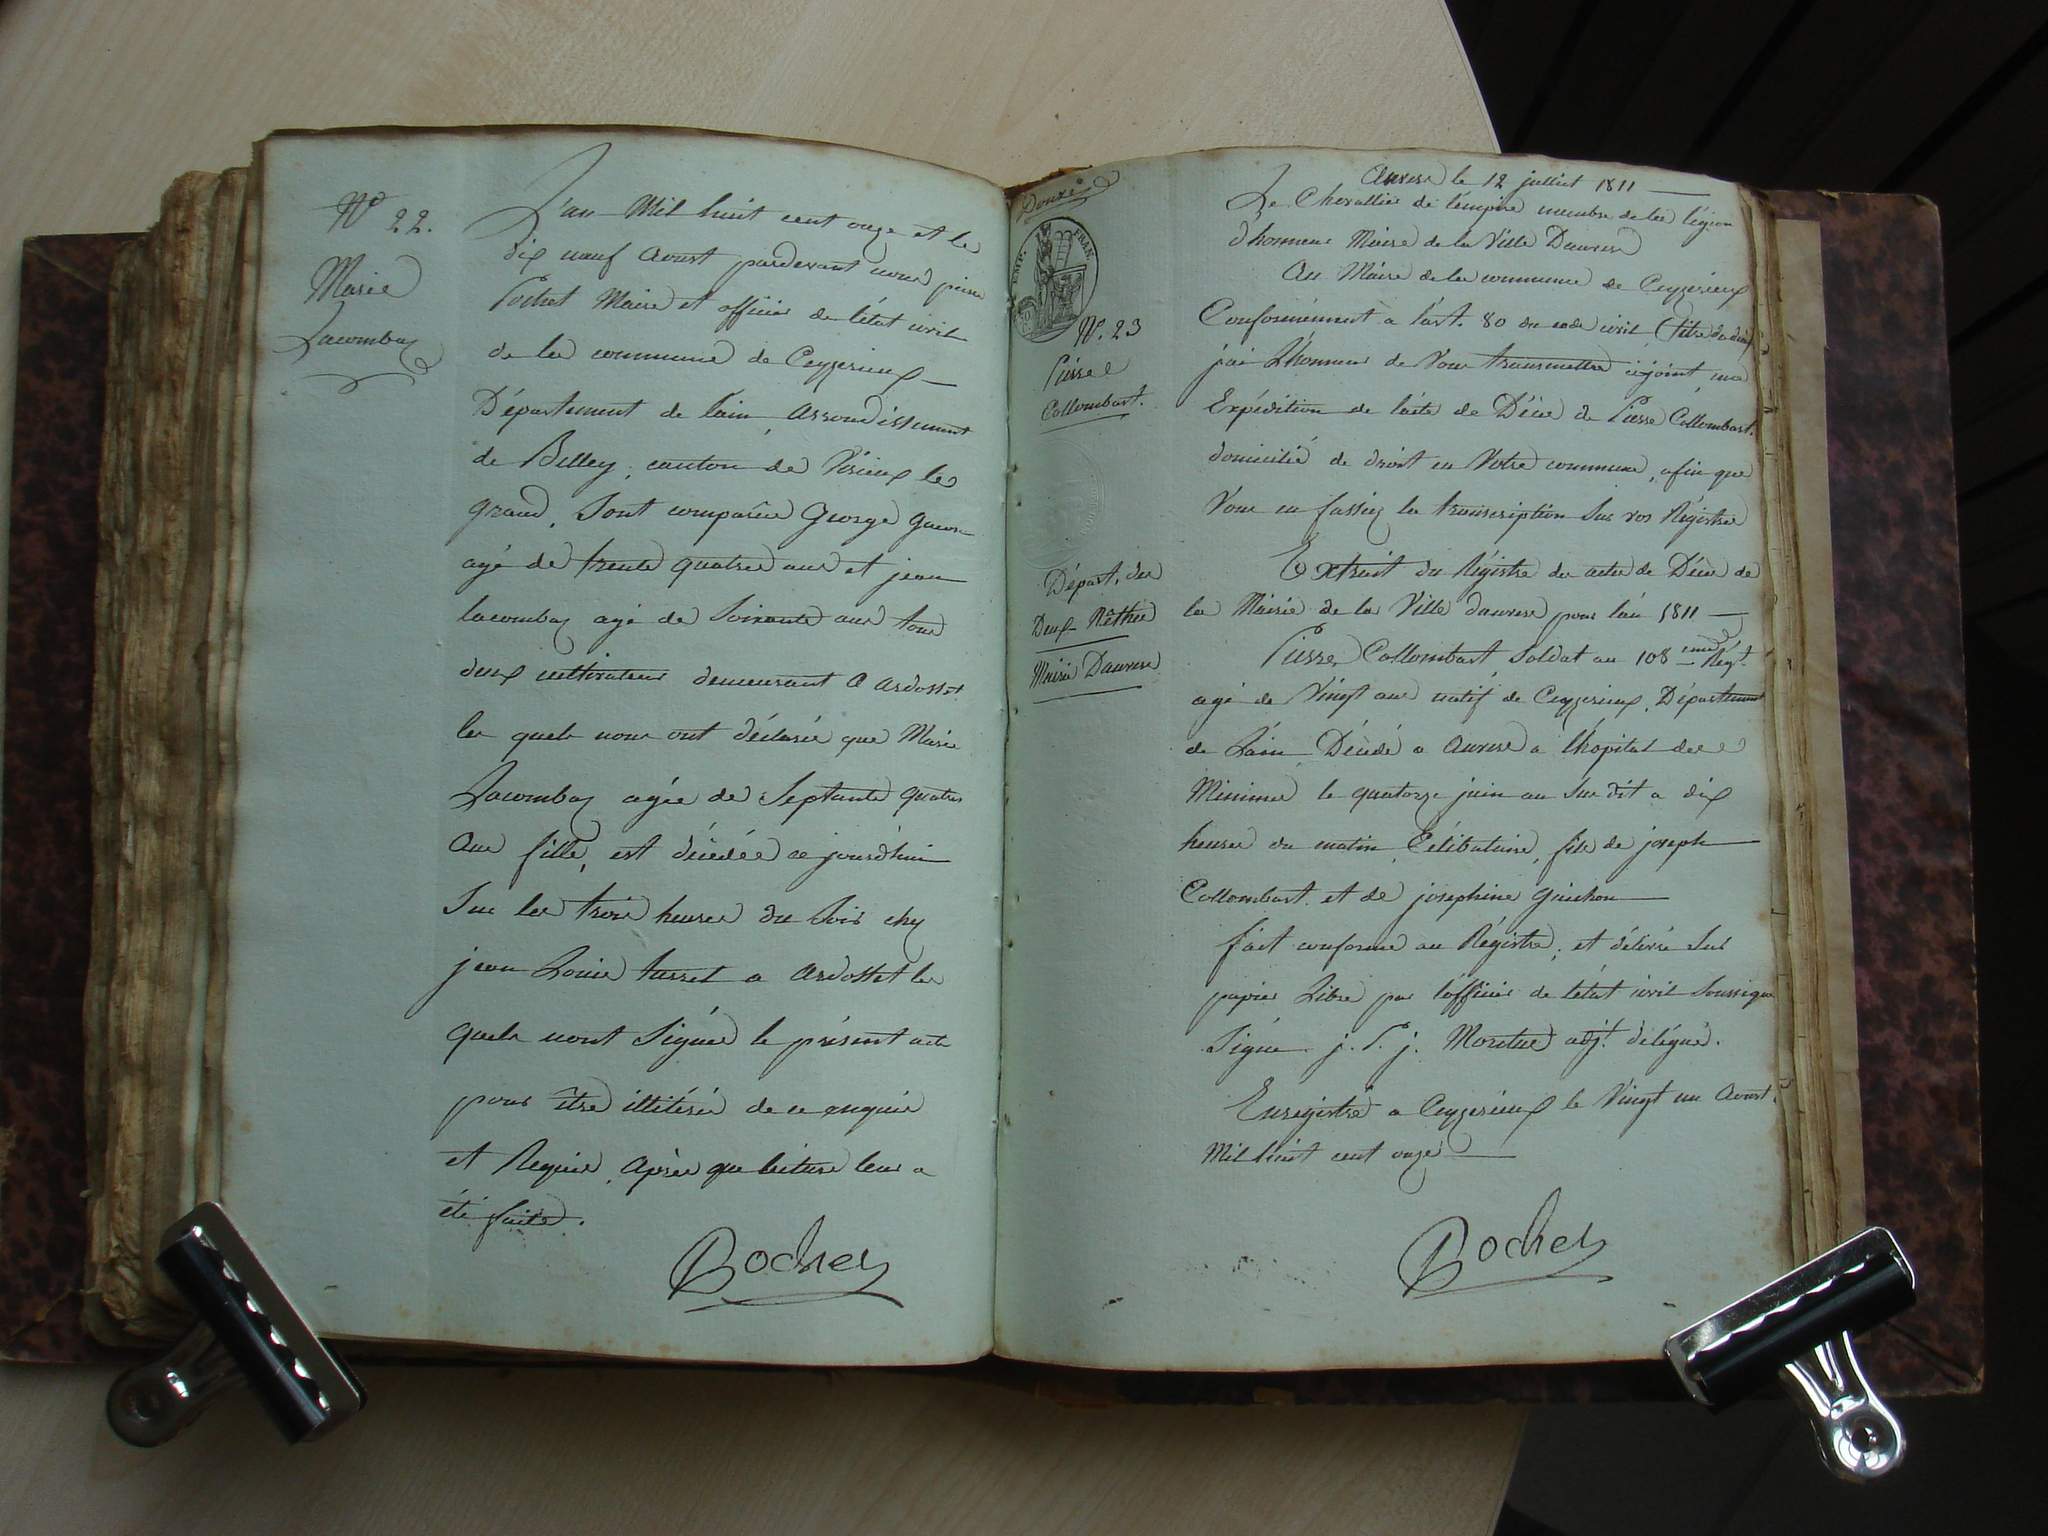 N° 22.
Marie
Lacombaz
L'an Mil huit cent onze et le
dix neuf Aoust pardevant nous pierre
Pochet Maire et officier de l'état civil
de la commune de Ceyzerieux
Département de l'ain, arrondissement
de Belley, canton de Virieux le
grand, Sont comparûs George
agé de trente quatre ans et jean
lacombaz agé de Soixante ans tous
deux cultivateurs demeurant a ardosset
les quels nous ont déclarée que Marie
Lacombaz agée de Septante quatre
ans fille, est décédée ce jourd'hui
Sur les trois heures du Soir chez
jean Louis turrel a Ardosset les
quels n'ont Signés le présent acte
pour être illitérés de ce enquis
et Requis, Après que lecture leur a
été faite.
Pochet
Douze
EMP. FRAN.
N°. 23
Pierre
Collombart.
Départ. des
Deux Nèthes
Mairie D'anvers
Anvers le 12 juillet 1811
Le Chevallier de l'empire membre de la légion
d'honneur Maire de la Ville D'anvers
Au Maire de la commune de Ceyzerieux
Conformément a l'art. 80 du code civil (titre
j'ai L'honneur de Vous transmettre cijoint, une
Expédition de l'acte de Décès de Pierre Collombart.
domicilié de droit en Votre commune, afin que
Vous en fassiez la transcription Sur vos Régistres
Extrait du Régistre des actes de Décès de
la Mairie de la Ville d'anvers pour l'an 1811
Pierre Collombart Soldat au 108 eme Régt.
agé de Vingt ans natif de Ceyzerieux, Département
de L'ain, Décédé a anvers a l'hopital des
Minimes le quatorze juin an Sus dit a dix
heures du matin, Célibataire, fils de joseph
Collombart et de josephine guichon
fait conforme au Régistre, et délivré Sur
papier Libre par l'officier de l'état civil Soussigné
Signé j. P. j. adjt. délégué.
Enregistré a Ceyzerieux le Vingt un Aoust
Mil huit cent onze
Pochet